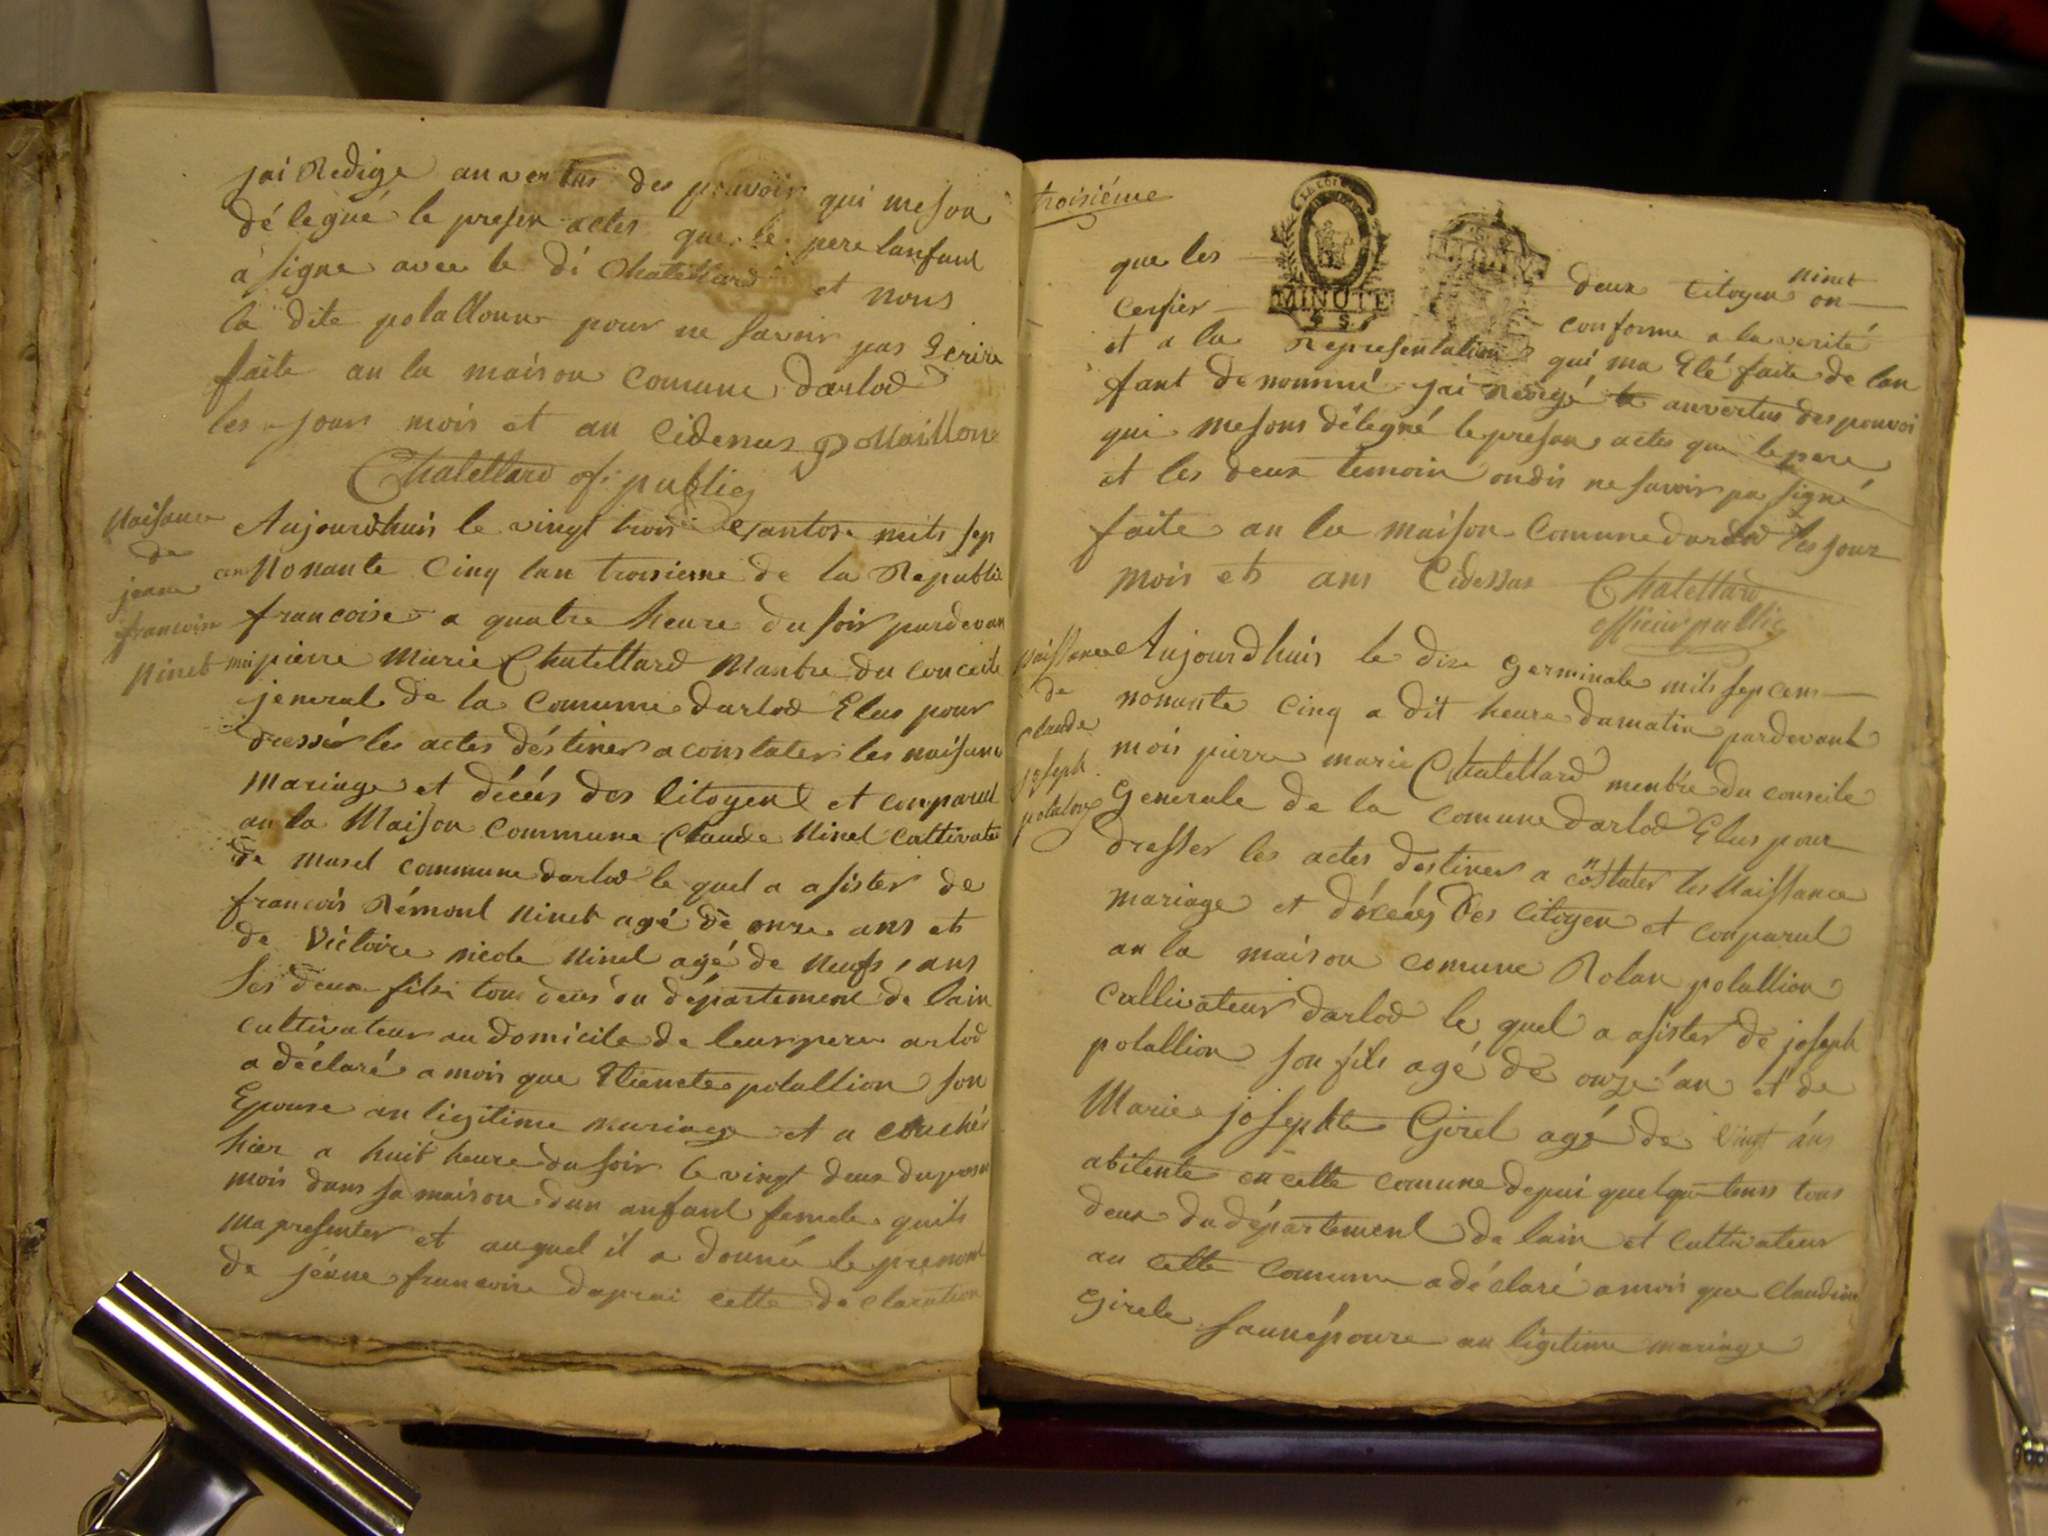 jai Redige auvertus des pouvoir qui meson
délegué le presen actes que le pere lanfant
a signe avec le di Chatellard et nous
la dite polallonne pour ne savoir pas Ecrire
faite au la maison comune darlod
les jour mois et an cidenus pollaillon
Chatellard of: public
Naisance
de
jeane
francoise
Ninet
Aujourdhuis le vingt trois vantose mils sep
cen Nonante Cinq lan troisieme de la Republi
francoise a quatre heure du soir pardevan
moi pierre Marie Chatellard Manbre du conceile
jeneral de la Comune darlod Elus pour
dressér les actes déstiner a constater les naisance
Mariage et décés des Citoyent et conparut
au la Maison commune Claude Ninet cultivate
de Musel commune darlod le quel a asister de
francois Rémont Ninet agé de onze ans et
de Victoire nicole Ninet agé de neufs ans
Ses deux fils tous deus du département de lain
cultivateur au domicile de leur pere arlod
a déclaré a mois que Etienete polallion son
Epouse an ligitime mariage et a couché
hier a huit heure du soir le vingt deux du presen
mois dans sa maison dun anfant femele quils
ma presenter et auquel il a donné le prenom
de jéane francoise daprai cette declaration
troisiéme
que les deux Citoyen ninet on
cerfier conforme a la verité
MINUTE
et a la Representation qui ma Eté faite de lan
fant denommé jai Redigé auvertus des pouvoi
qui mesons délegné le preson actes que le pere
et les deux temoin ondis ne savoir pa signé
faite au la maison Comune darlod les jour
mois et ans Cidessus Chatellard
officier public
naissance
de
claude
joseph
polalion
Aujourdhuis le dix germinale mils sepcens
nonante cinq a dit heure du matin pardevant
mois pierre marie Chatellard menbre du conseile
Generale de la comune darlod Elus pour
dresser les actes destiner a constater les Naissance
mariage et décées Des Citoyen et conparut
au la maison comune Rolan polallion
cullivateur darlod le quel a asister de joseph
polallion son fils agé de onze an et de
Marie josephte Girel agé de vingt ans
abitente en cette comune depui quelque tems tous
deux du département de lain et cultivateur
au cette comune a déclaré a mois que claudine
Girele sauné poure an ligitime mariage